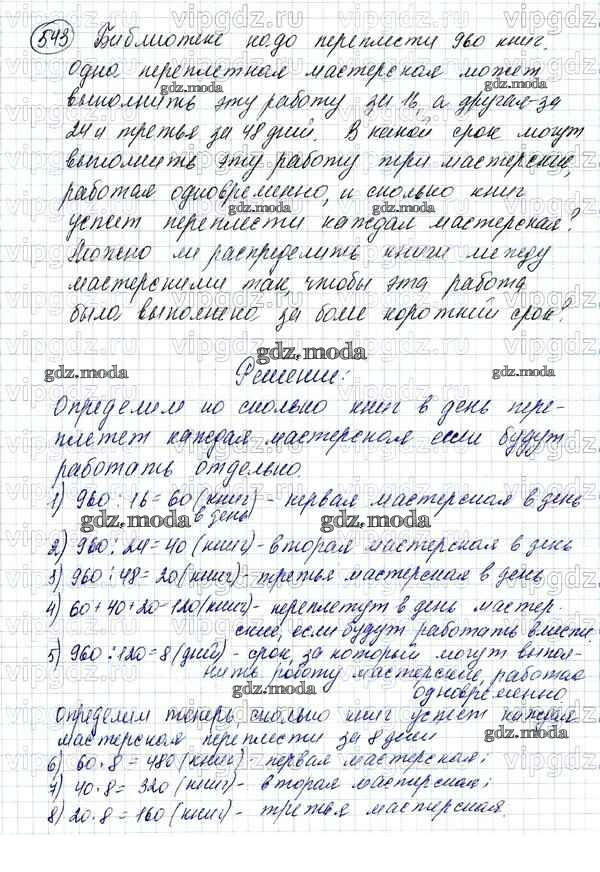 543 Библиотеке надо переплести 960 книг.
Одна переплетная мастерская может
выполнить эту работу за 16, а другая-за
24 и третья за 48 дней. В какой срок могут
выполнить эту работу три мастерские,
работая одновременно, и сколько книг
успеет переплести каждая мастерская?
Можно ли распределить книги между
мастерскими так, чтобы эта работа
была выполнена за более короткий срок?
Решение:
Определим по сколько книг в день пере-
плетет каждая мастерская если будут
работать отдельно.
1) 960 : 16 = 60 (книг) - первая мастерская в день
в день
2) 960 : 24 = 40 (книг) - вторая мастерская в день
3) 960 : 48 = 20 (книг) - третья мастерская в день
4) 60 + 40 + 20 - 120 (книг) - переплетут в день мастер-
ские, если будут работать вместе.
5) 960 : 120 = 8 (дней) - срок, за который могут выпол-
нить работу мастерские, работая
одновременно
Определим теперь, сколько книг успеет каждая
мастерская переплести за 8 дней
6) 60 · 8 = 480 (книг) - первая мастерская;
7) 40 · 8 = 320 (книг) - вторая мастерская;
8) 20 · 8 = 160 (книг) - третья мастерская.
vipgdz.ru
gdz.moda